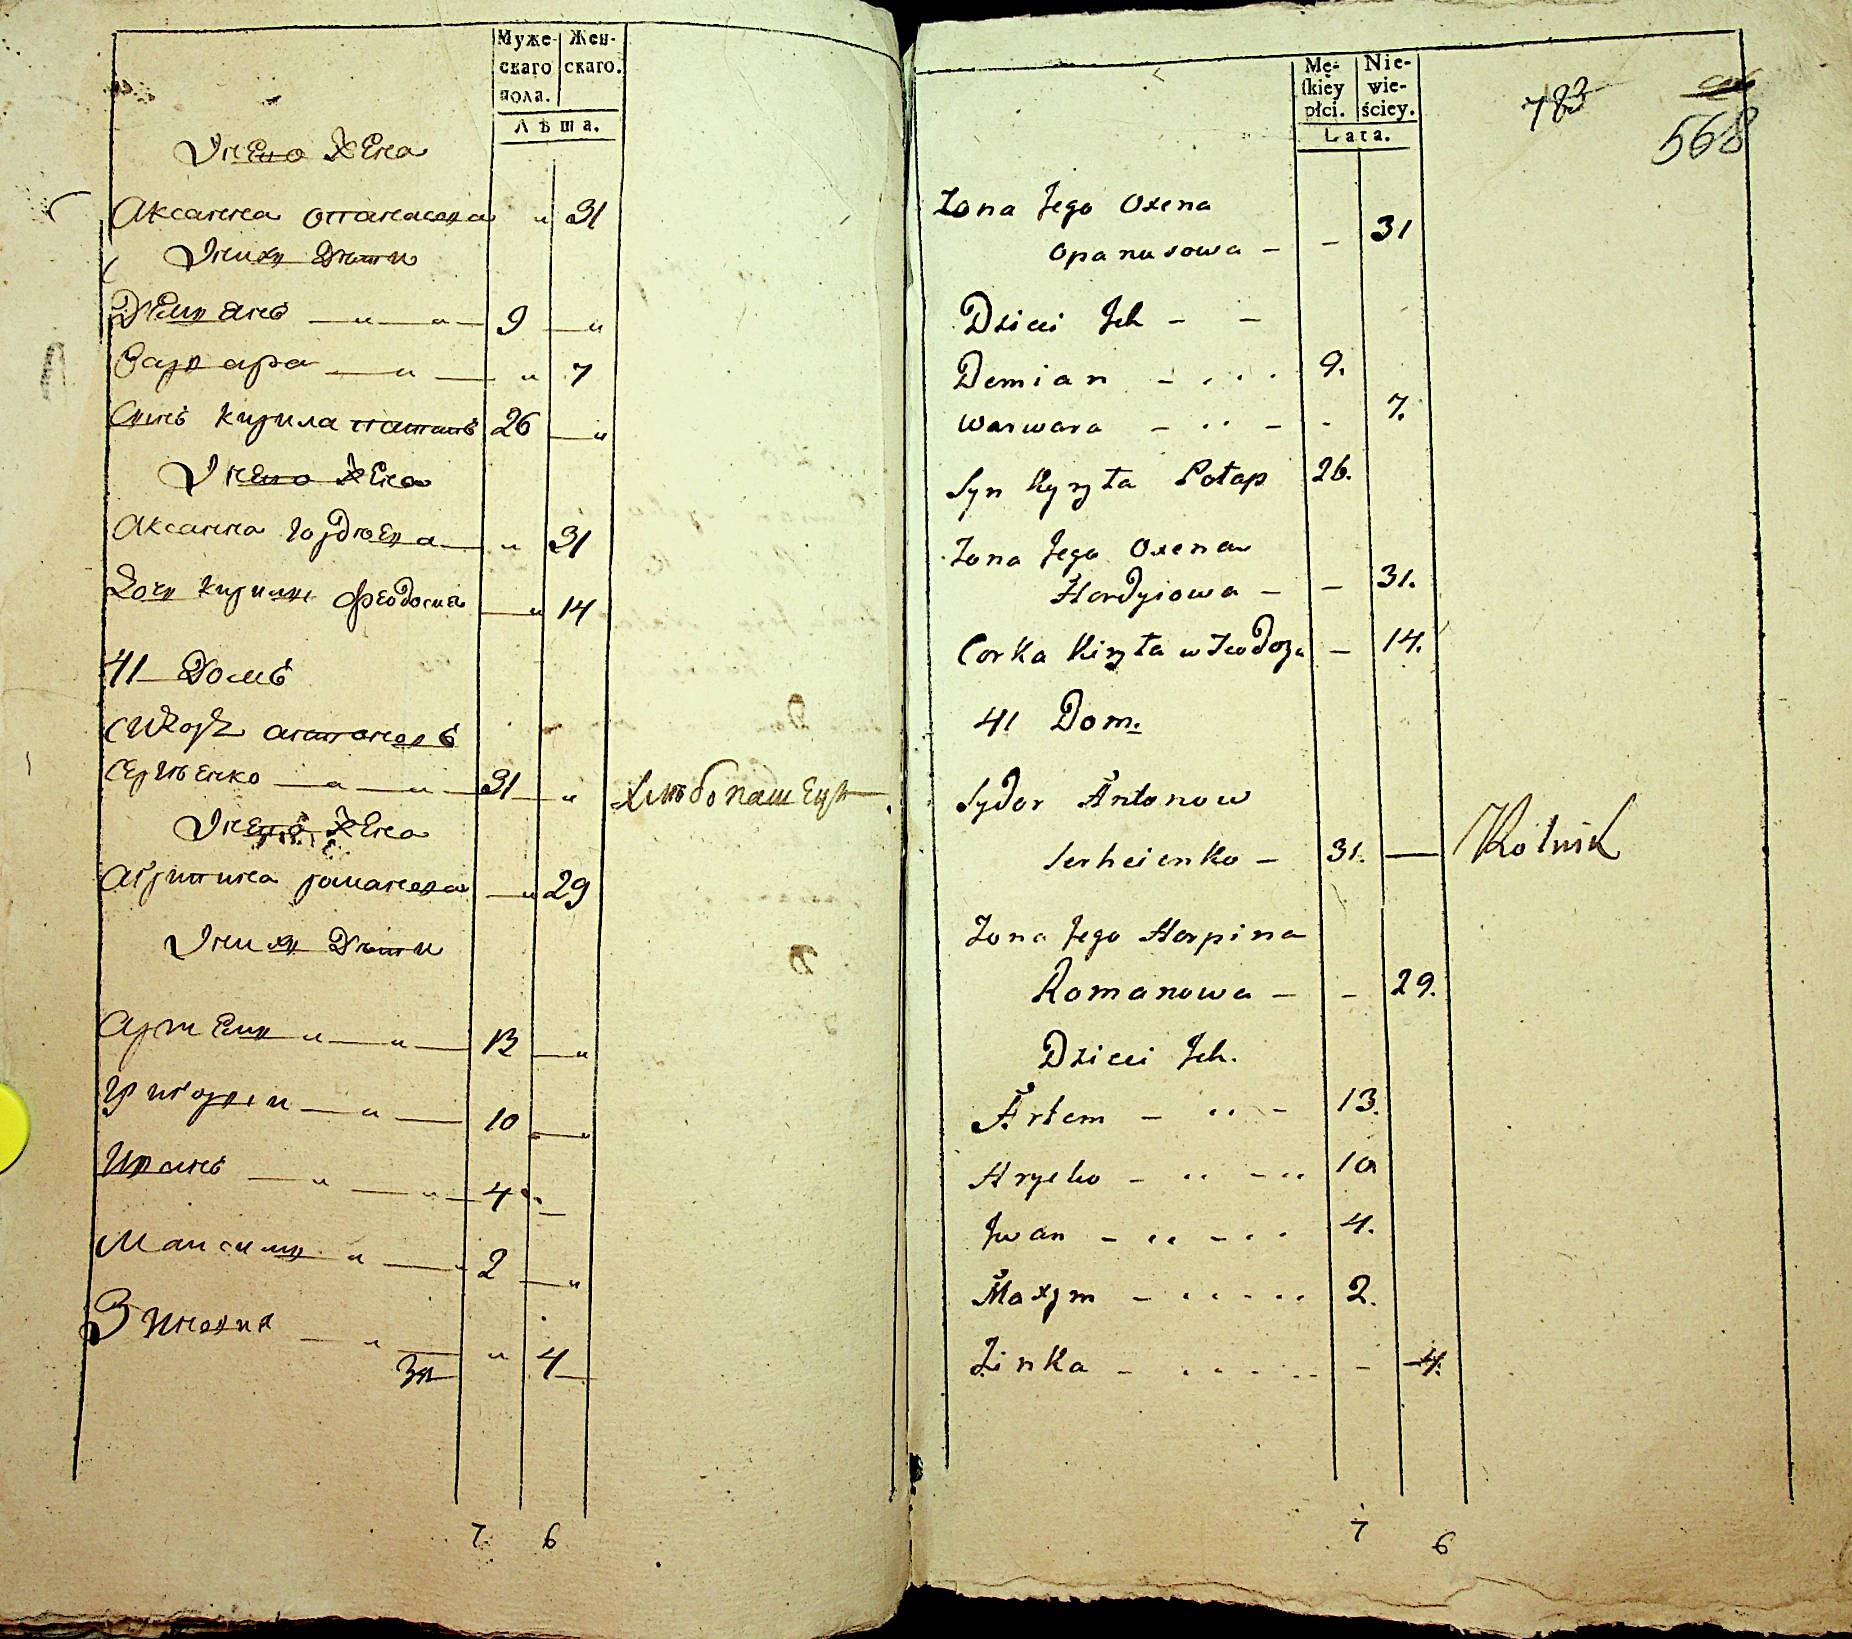 Муже-
скаго
пола.
Жен-
скаго.
Лѣта.
Унего Жена
Аксанна опанасова " 31
Унихъ Дѣти
Демянъ — " — " — 9 — "
Варвара — " — " 7
Сынъ Кирила Потапъ 26 — "
Унего Жена
Аксанна Гордѣева — " 31
Дочь Кирилы Феодосия — " 14
41 Домъ
Сидоръ антоновъ
Сергѣенко — " — " — 31 — " Хлѣбопашецъ
Унего Жена
Агрипина романова — " 29
Унихъ Дѣти
Артемъ " — " — 13 — "
Григорий — " — 10 — "
Иванъ — " — " — 4 " —
Максимъ " — 2 — "
Зиновия — " — " 4
7 6
Mę-
skiey
płci.
Nie-
wie-
ściey.
Lata.
783
568
Zona Jego Oxena
Opanasowa – – 31
Dzieci Jch – –
Demian – . . . 9.
Warwara – . . – - 7.
Syn Kyryła Potap 26.
Zona Jego Oxena
Hordyiowa – – 31.
Corka Kiryła Teodozya – 14.
41 Dom.
Sydor Antonow
Serheienko – 31. — Rolnik
Zona Jego Horpina
Romanowa – – 29.
Dzieci Jch.
Artem – . . – 13.
Hryćko – . . – . . 10
Jwan – . . – . . 4.
Maxym – . . – . . 2.
Zinka – . . . . . – 4.
7 6